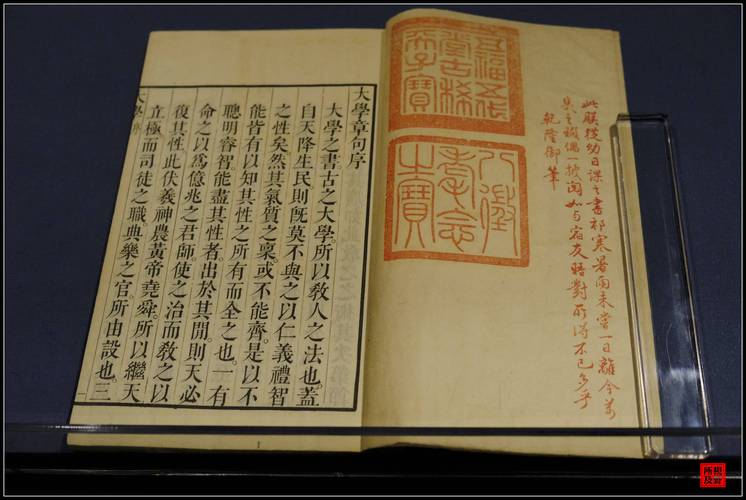 此朕從幼日課之書祁寒暑雨未嘗一日離今万
幾之暇偶一披閱如与宿友晤對所得不已多乎
乾隆御筆
五福五代
堂古稀
天子寶
八徵
耄念
之寶
大學章句序
大學之書。古之大學。所以敎人之法也。蓋
自天降生民。則旣莫不與之以仁義禮智
之性矣。然其氣質之稟。或不能齊。是以不
能皆有以知其性之所有而全之也。一有
聰明睿智能盡其性者。出於其閒。則天必
命之以爲億兆之君師。使之治而敎之。以
復其性。此伏羲神農黃帝堯舜。所以繼天
立極。而司徒之職。典樂之官。所由設也。三